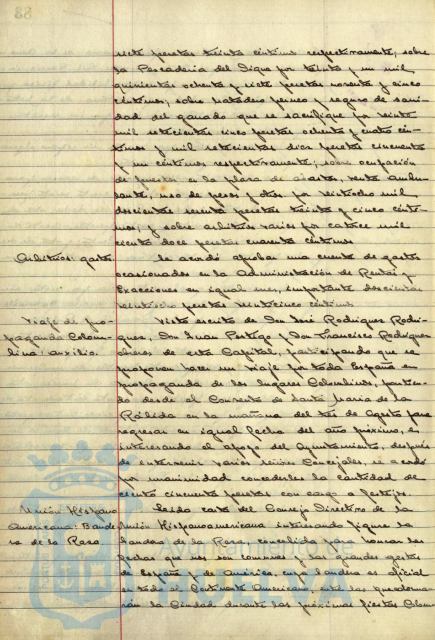 83
siete pesetas treinta céntimos respectivamente, sobre
la Pescadería del Dique por treinta y un mil
quinientos ochenta y siete pesetas noventa y cinco
céntimos, sobre matadero perneo y seguro de sani-
dad del ganado que se sacrifique por veinte
mil setecientos cinco pesetas ochenta y cuatro cén-
timos y mil setecientas dos pesetas cincuenta
y un céntimos respectivamente; sobre ocupación
de puestos en la plaza de abastos, venta ambu-
lante, uso de pesos y otros por veintiocho mil
doscientas pesetas treinta y cinco cénti-
mos, y sobre arbitrios varios por catorce mil
ciento doce pesetas cuarenta céntimos
Arbitrios: gastos. Se acordó aprobar una cuenta de gastos
ocasionados en la Administración de Rentas y
Exacciones en igual mes, importante doscientas
veintiocho pesetas veinticinco céntimos
Viaje de pro- Visto escrito de Don José Rodríguez Rodrí-
paganda Colom- guez, Don Juan Postigo y Don Francisco Rodríguez
bina: auxilio. obreros de esta Capital, participando que se
proponen hacer un viaje por toda España en
propaganda de los lugares Colombinos, partien-
do desde el Convento de Santa María de la
Rábida en la mañana del tres de Agosto para
regresar en igual fecha del año próximo, e
interesando el apoyo del Ayuntamiento, después
de intervenir varios señores Concejales, se acordó
por unanimidad concederles la cantidad de
ciento cincuenta pesetas con cargo a festejos.
Unión Hispano Leída carta del Consejo Directivo de la
Americana: Bande- Unión Hispanoamericana interesando figure la
ra de la Raza bandera de la Raza, concebida para honrar las
fechas que nos son comunes y las grandes gestas
de España y de América, cuya bandera es oficial
en todo el Continente Americano, entre las que adorna-
rán la Ciudad durante las próximas fiestas Colom-